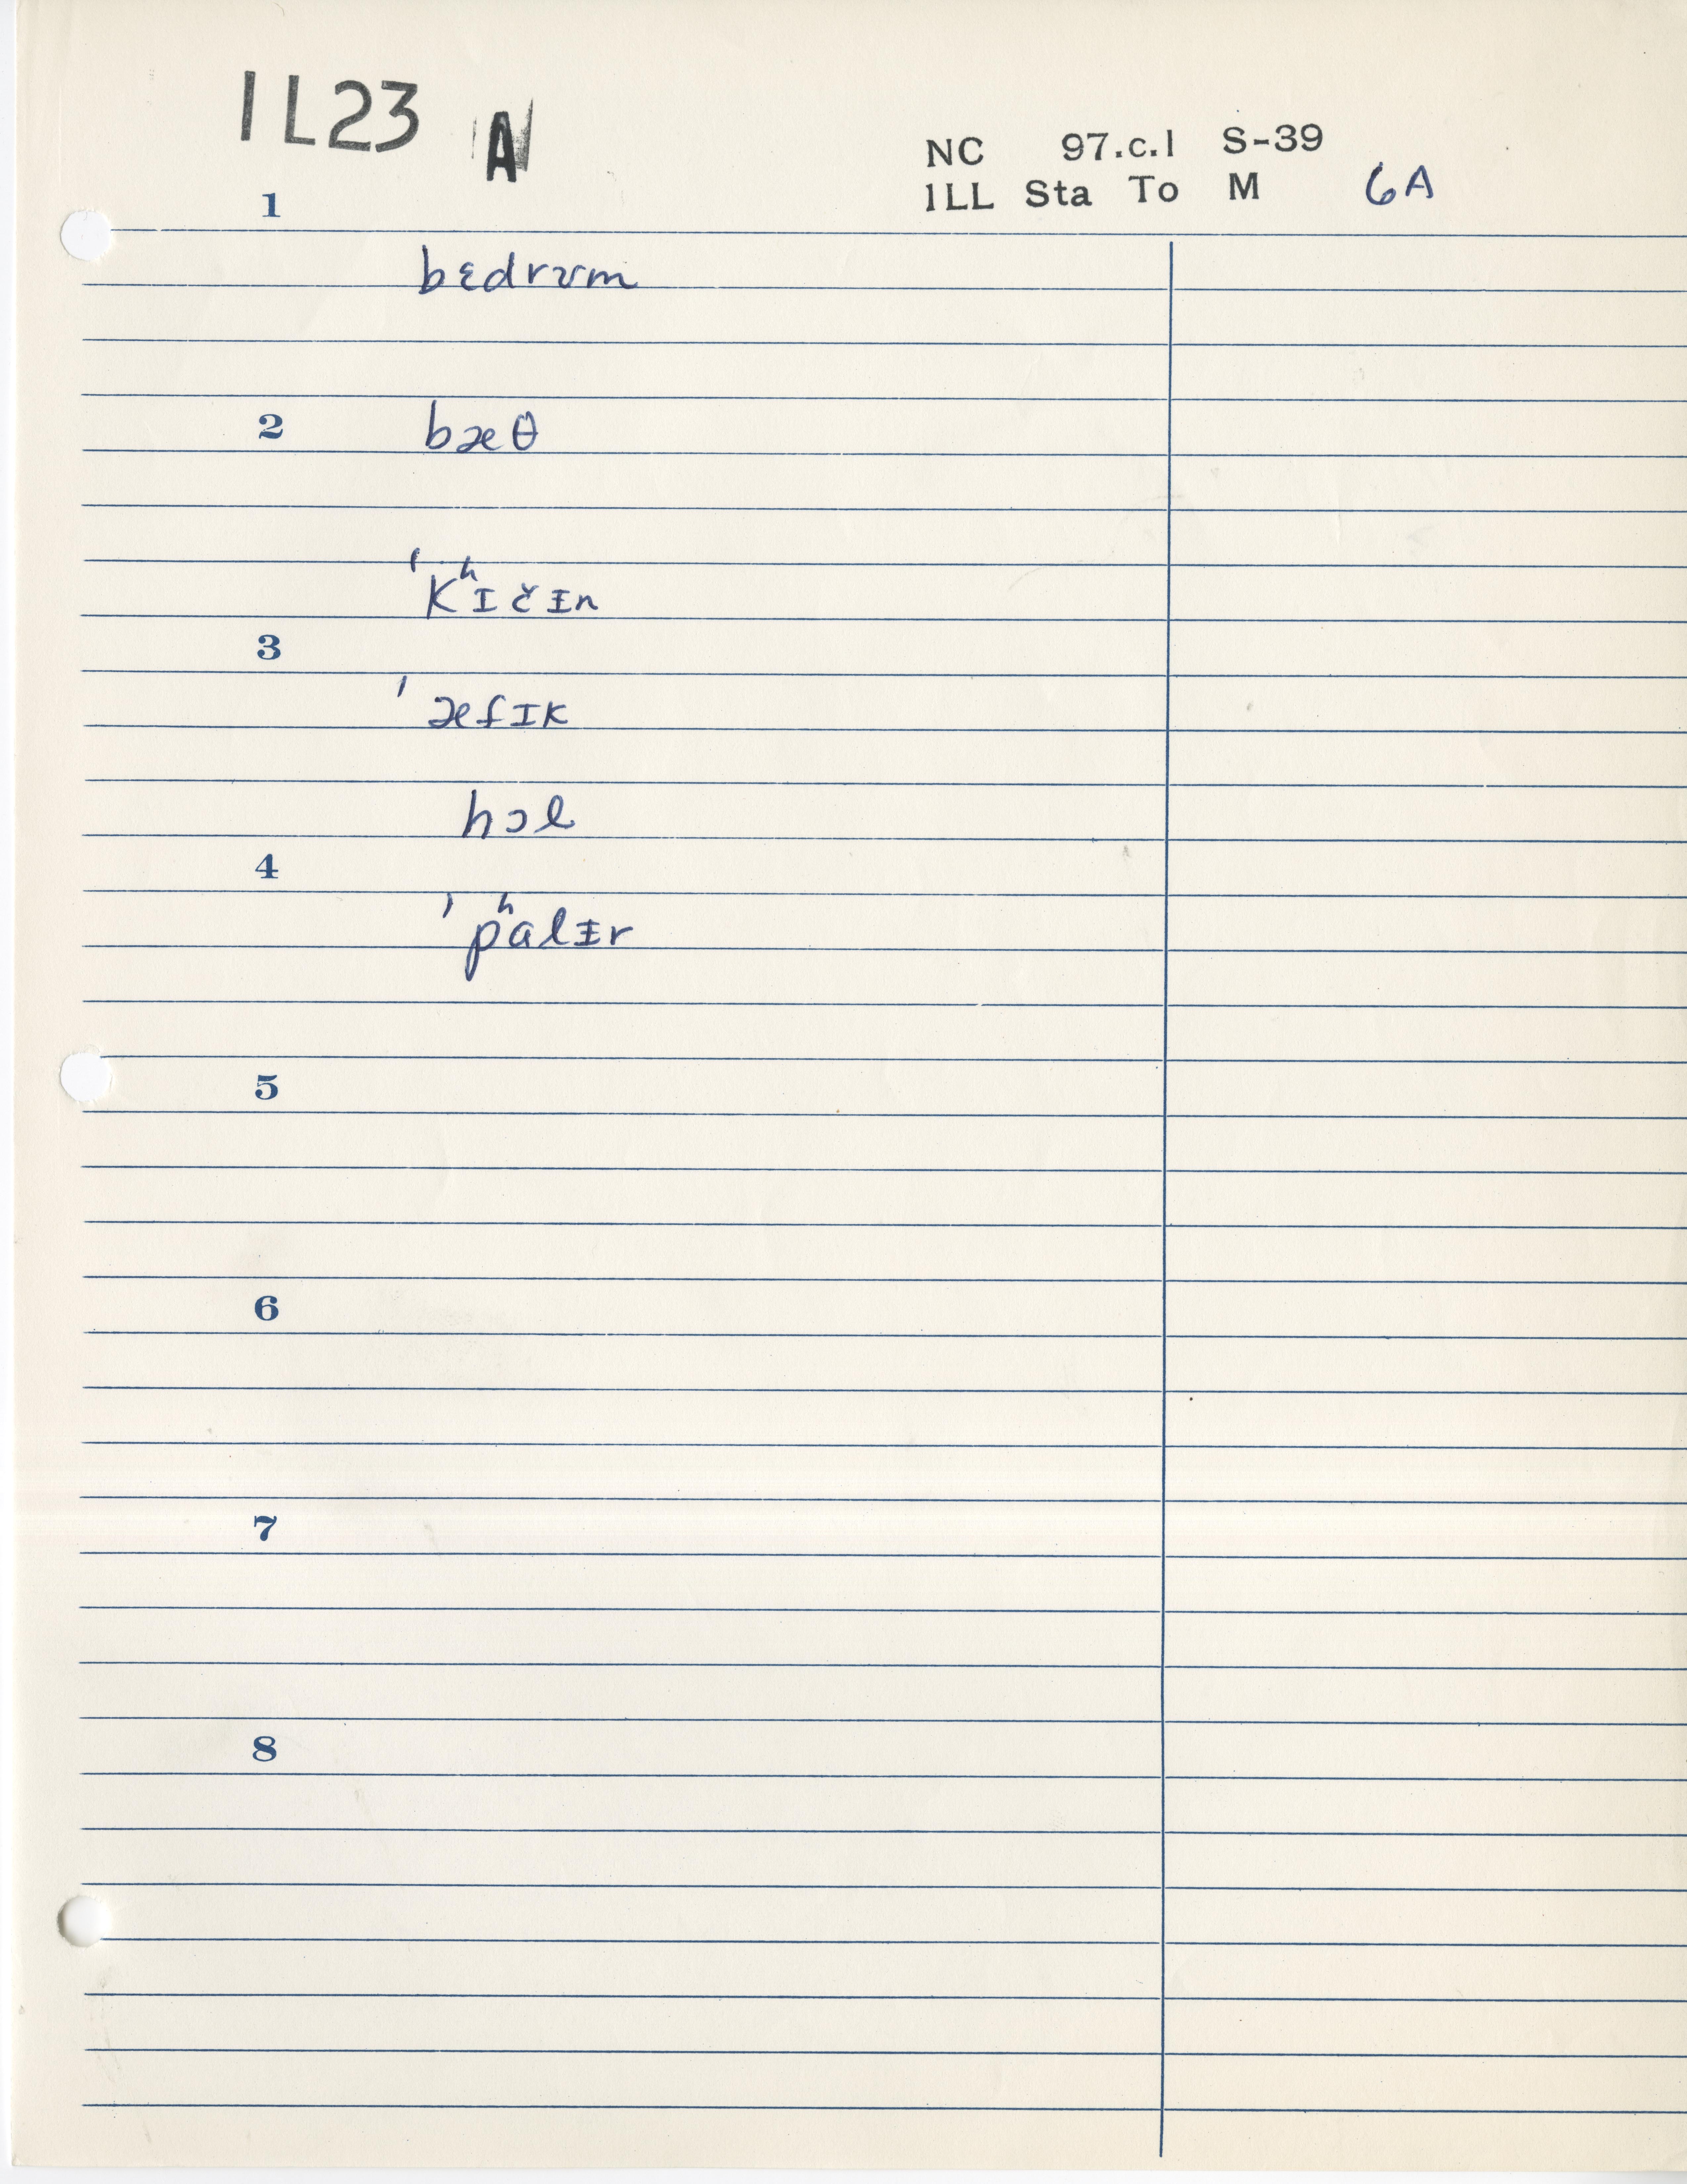 1L23 A
NC 97.c.1 S-39
1LL Sta To M 6A
1
bɛdrʊm
2 bæθ
ˈkʰɪčɪ̵n
3
ˈæfɪk
hɔl
4
ˈpʰalɪ̵r
5
6
7
8